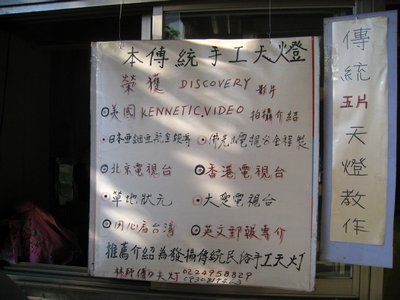 本傳統手工天燈
榮獲 DISCOVERY 影片
◎美國 KENNETIC.VIDEO 拍攝介紹
•日本亞細亞航空報導 •佛光山電視台全程製
◎北京電視台 ◎香港電視台
•草地狀元 •大愛電視台
◎用心看台灣 ◎英文郵報專介
推薦介紹為發揚傳統民俗手工天灯
天灯 0224958829
傳統五片天燈教作